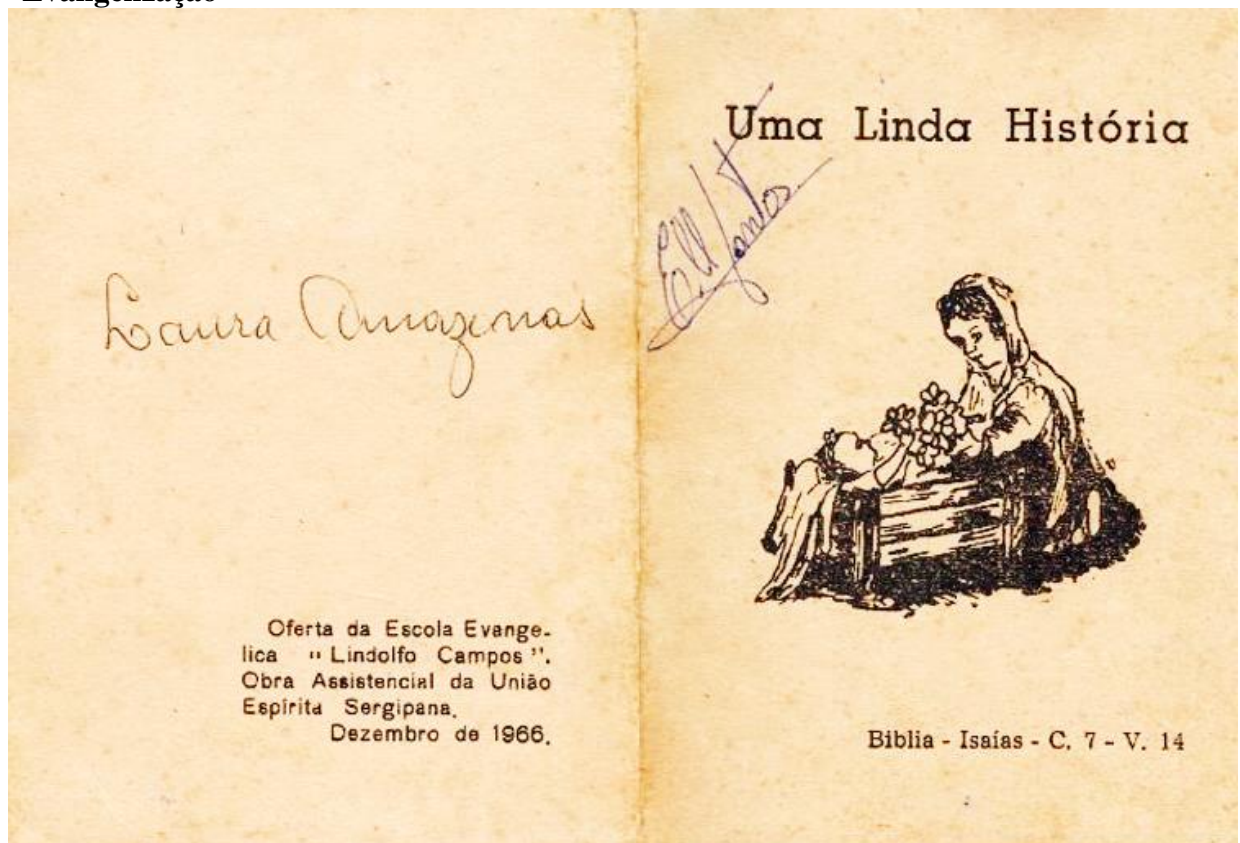 Evangelização
Laura Amazonas
Oferta da Escola Evange-
lica "Lindolfo Campos".
Obra Assistencial da União
Espírita Sergipana.
Dezembro de 1966.
Uma Linda História
Santos
Biblia - Isaías - C. 7 - V. 14